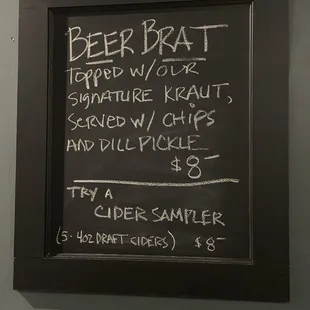 BEER BRAT
TOPPED W/ OUR
SIGNATURE KRAUT,
SERVED W/ CHIPS
AND DILL PICKLE
$8-
TRY A
CIDER SAMPLER
(5 - 4OZ DRAFT CIDERS) $8-